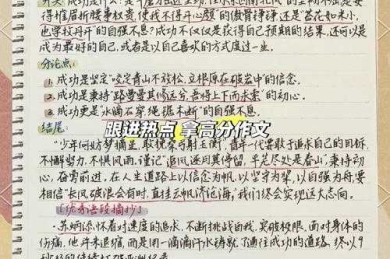 得摧眉折腰事权贵,使我不得开心颜"的傲骨铮铮,还是"苔花如米小,
也学牡丹开"的自强不息?成功不仅仅是获得自己预期的结果,还可以是
成为最好的自己,或者是以自己喜欢的方式度过一生。
分论点:
1.成功是坚定"咬定青山不放松,立根原在破岩中"的信念。
2.成功是秉持"路曼曼其修远兮,吾将上下而求索"的动心。
3.成功更是"水滴石穿,绳锯木断"的自强不息。
跟进热点 拿高分作文
结尾:
"少年何妨梦摘星,敢挽桑弓射玉衡",青年一代需敢于追求自己的目标,
不懈努力,不惧风雨,谨记"追风逐月莫停留,平芜尽处是春山",秉持动
心,奋勇前进,在人生道路上以信念为帆,以坚守为桨,以自强为舟,要
相信"长风破浪会有时,直挂云帆济沧海",我们终会实现远大志向。
苏炳添怀着对速度的追求,不断挑战自我,突破极限,面对身体的
伤痛,他并未退缩,而是用一滴滴汗水铸就了通往成功的道路,终以9